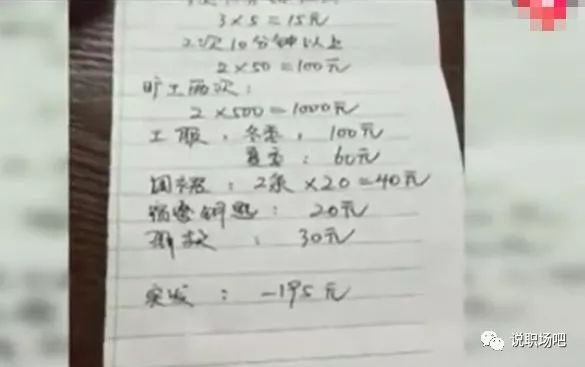 3×5=15元
2次10分钟以上
2×50=100元
旷工两次:
2×500=1000元
工服:冬季:100元
夏季:60元
围裙:2条×20=40元
宿舍钥匙:20元
:30元
实发:-195元
说职场吧